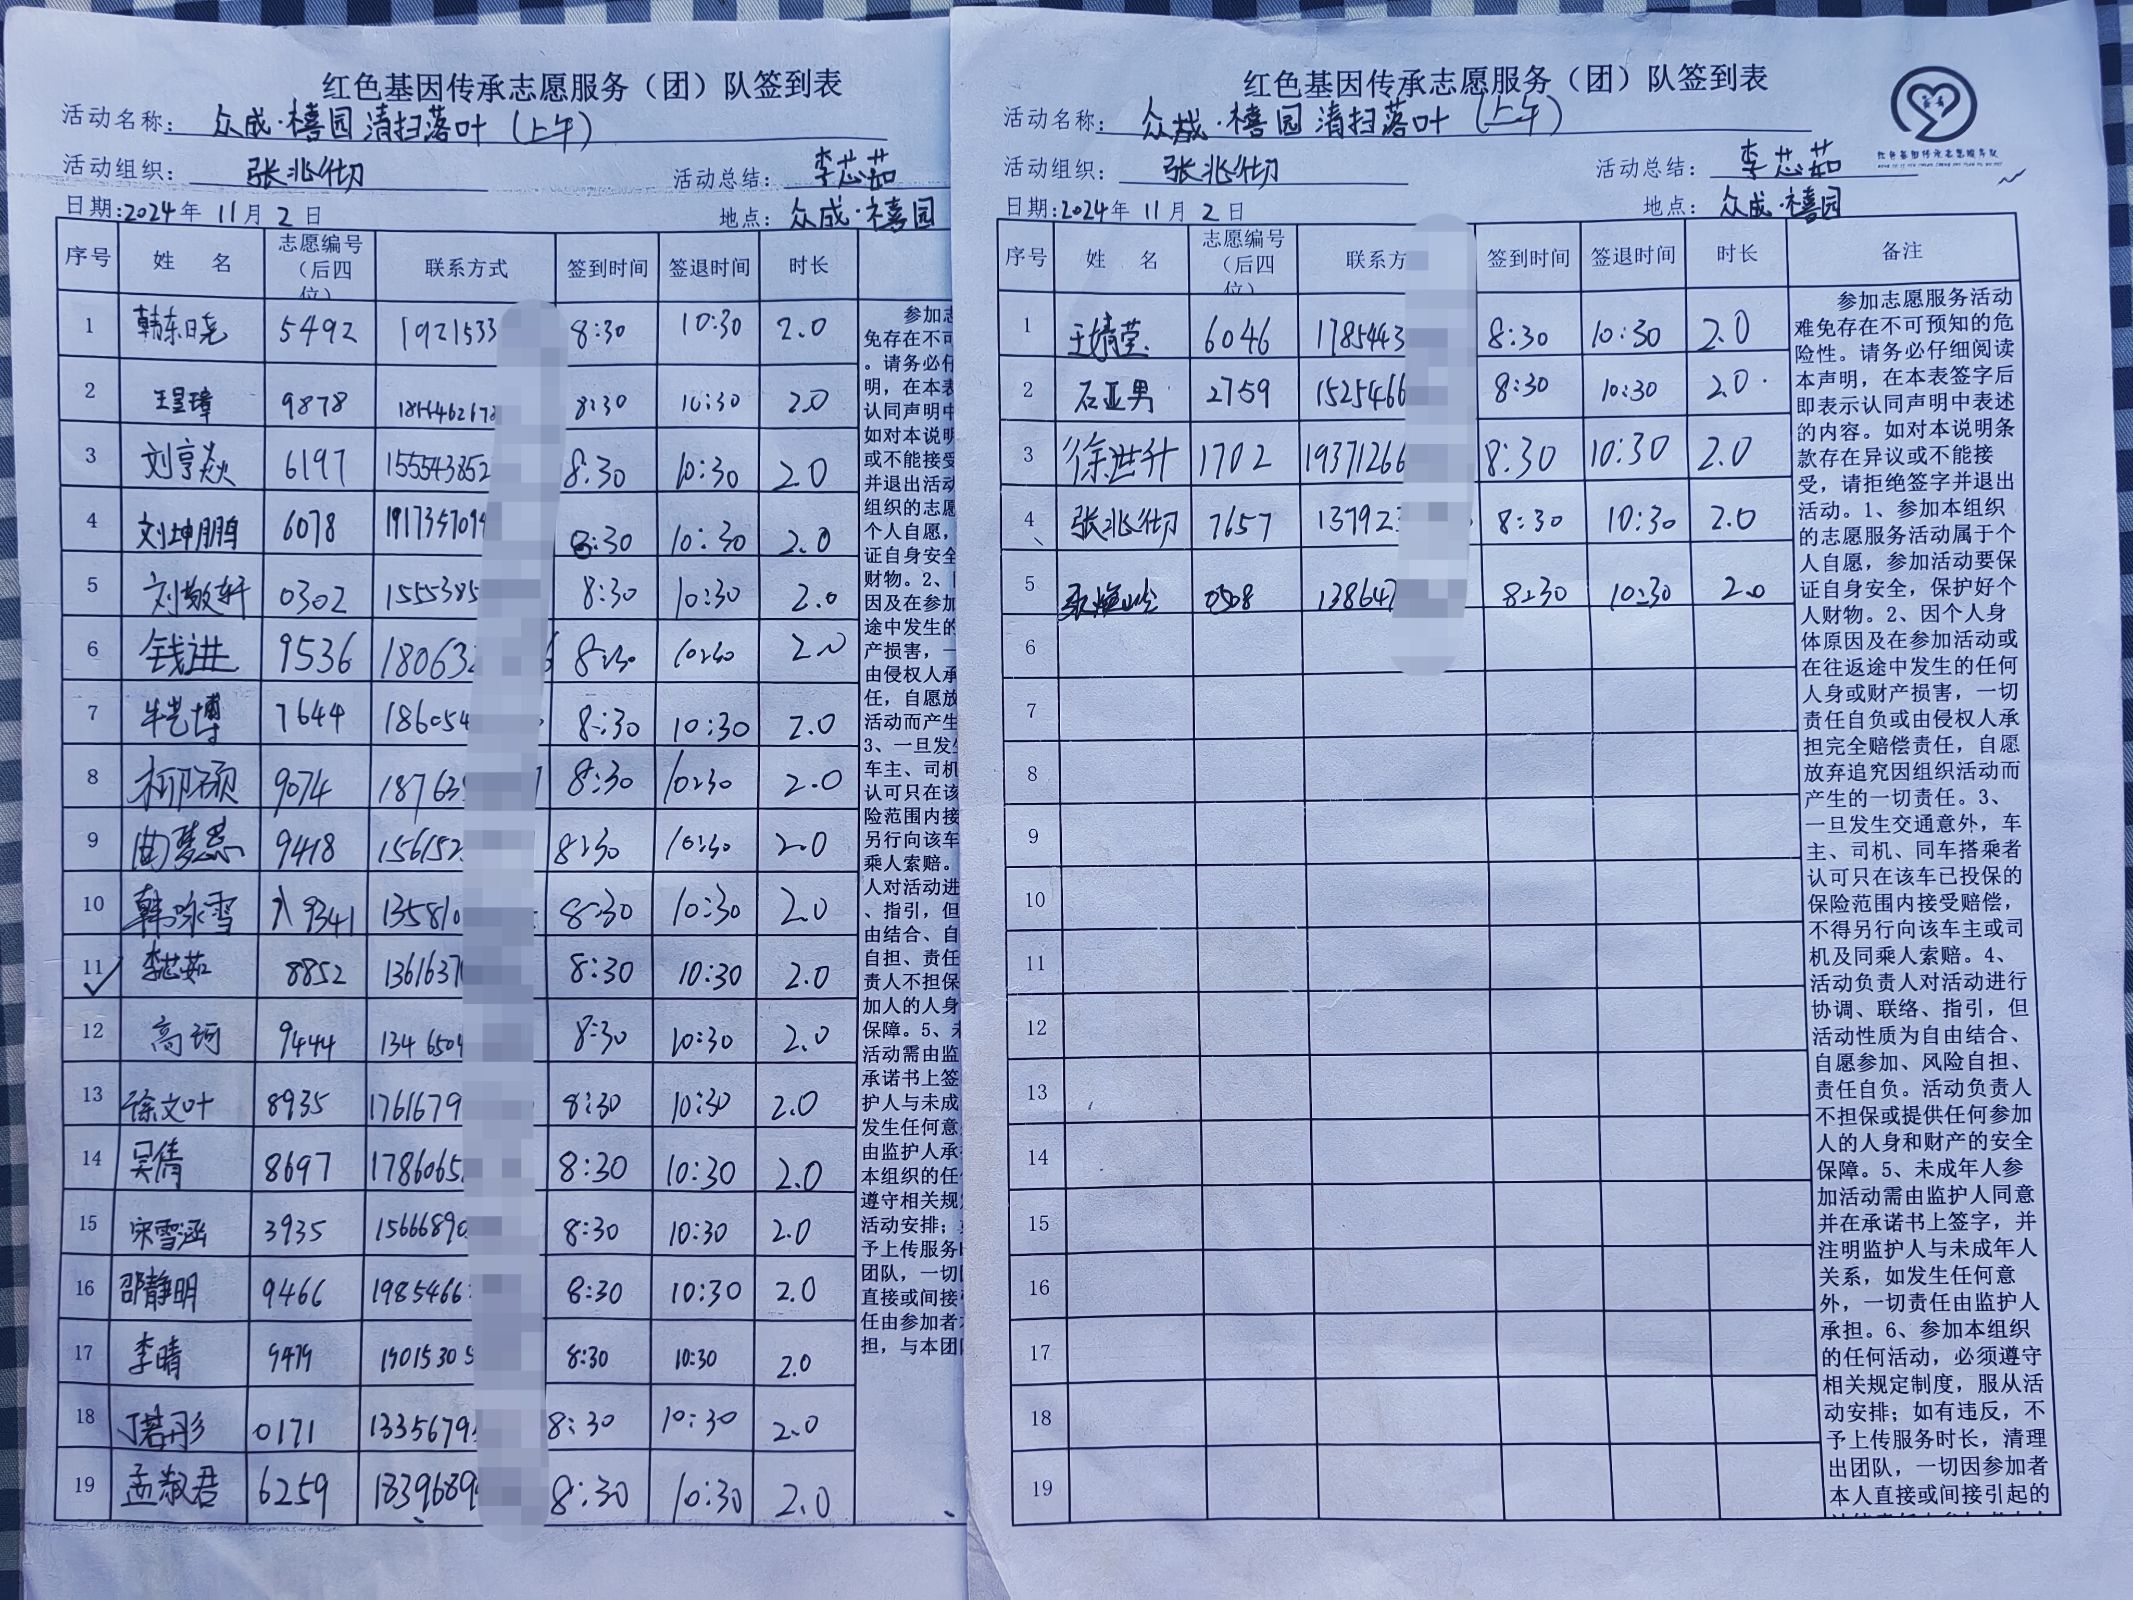 红色基因传承志愿服务（团）队签到表
活动名称： 众成·禧园清扫落叶（上午）
活动组织： 张兆彻 活动总结： 李芯茹
日期:2024年 11月 2 日 地点： 众成·禧园
序号 姓 名 志愿编号（后四位） 联系方式 签到时间 签退时间 时长
1 韩东晓 5492 1921533 8:30 10:30 2.0
2 王昱璋 9878 8:30 10:30 2.0
3 刘亨焱 6197 155543852 8:30 10:30 2.0
4 刘坤鹏 6078 1917357094 8:30 10:30 2.0
5 刘敬轩 0302 1555385 8:30 10:30 2.0
6 钱进 9536 18063 8:30 10:30 2.0
7 牛艺博 7644 186054 8:30 10:30 2.0
8 柳硕 9074 18763 8:30 10:30 2.0
9 曲梦蕊 9418 156152 8:30 10:30 2.0
10 韩咏雪 9341 135810 8:30 10:30 2.0
11 李芯茹 8852 1361637 8:30 10:30 2.0
12 高珂 9444 1346504 8:30 10:30 2.0
13 徐文叶 8935 1761679 8:30 10:30 2.0
14 吴倩 8697 1786065 8:30 10:30 2.0
15 宋雪涵 3935 15666890 8:30 10:30 2.0
16 邵静明 9466 1985466 8:30 10:30 2.0
17 李晴 9479 19015305 8:30 10:30 2.0
18 丁若彤 0171 1335679 8:30 10:30 2.0
19 孟淑君 6259 1839689 8:30 10:30 2.0
参加志
免存在不可
。请务必仔
明，在本表
认同声明中
如对本说明
或不能接受
并退出活动
组织的志愿
个人自愿，
证自身安全
财物。2、
因及在参加
途中发生的
产损害，一
由侵权人承
任，自愿放
活动而产生
3、一旦发生
车主、司机
认可只在该
险范围内接
另行向该车
乘人索赔。
人对活动进
、指引，但
由结合、自
自担、责任
责人不担保
加人的人身
保障。5、未
活动需由监
承诺书上签
护人与未成
发生任何意
由监护人承
本组织的任
遵守相关规
活动安排；
予上传服务
团队，一切
直接或间接
任由参加者
担，与本团
红色基因传承志愿服务（团）队签到表
活动名称： 众成·禧园清扫落叶（上午）
红色基因传承志愿服务队
活动组织： 张兆彻 活动总结： 李芯茹
日期:2024年 11月 2 日 地点： 众成·禧园
序号 姓 名 志愿编号（后四位） 联系方 签到时间 签退时间 时长 备注
1 王婧莹 6046 1785443 8:30 10:30 2.0
2 石亚男 2759 1525466 8:30 10:30 2.0
3 徐进升 1702 19371266 8:30 10:30 2.0
4 张兆彻 7657 13792 8:30 10:30 2.0
5 0508 138647 8:30 10:30 2.0
6
7
8
9
10
11
12
13
14
15
16
17
18
19
参加志愿服务活动
难免存在不可预知的危
险性。请务必仔细阅读
本声明，在本表签字后
即表示认同声明中表述
的内容。如对本说明条
款存在异议或不能接
受，请拒绝签字并退出
活动。1、参加本组织
的志愿服务活动属于个
人自愿，参加活动要保
证自身安全，保护好个
人财物。2、因个人身
体原因及在参加活动或
在往返途中发生的任何
人身或财产损害，一切
责任自负或由侵权人承
担完全赔偿责任，自愿
放弃追究因组织活动而
产生的一切责任。3、
一旦发生交通意外，车
主、司机、同车搭乘者
认可只在该车已投保的
保险范围内接受赔偿，
不得另行向该车主或司
机及同乘人索赔。4、
活动负责人对活动进行
协调、联络、指引，但
活动性质为自由结合、
自愿参加、风险自担、
责任自负。活动负责人
不担保或提供任何参加
人的人身和财产的安全
保障。5、未成年人参
加活动需由监护人同意
并在承诺书上签字，并
注明监护人与未成年人
关系，如发生任何意
外，一切责任由监护人
承担。6、参加本组织
的任何活动，必须遵守
相关规定制度，服从活
动安排；如有违反，不
予上传服务时长，清理
出团队，一切因参加者
本人直接或间接引起的